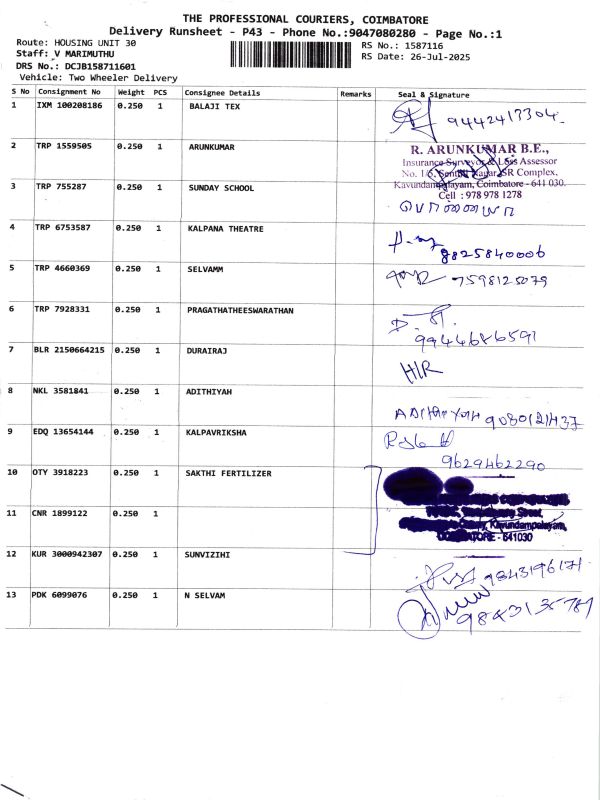 THE PROFESSIONAL COURIERS, COIMBATORE
Delivery Runsheet - P43 - Phone No.:9047080280 - Page No.:1
Route: HOUSING UNIT 30
Staff: V MARIMUTHU
DRS No.: DCJB158711601
Vehicle: Two Wheeler Delivery
RS No.: 1587116
RS Date: 26-Jul-2025
S No Consignment No Weight PCS Consignee Details Remarks Seal & Signature
1 IXM 100208186 0.250 1 BALAJI TEX 9442417304.
2 TRP 1559505 0.250 1 ARUNKUMAR
R. ARUNKUMAR B.E.,
Insurance Surveyor & Loss Assessor
No. 1/5, Senthil Nagar, SR Complex,
Kavundampalayam, Coimbatore - 641 030.
Cell : 978 978 1278
3 TRP 755287 0.250 1 SUNDAY SCHOOL
4 TRP 6753587 0.250 1 KALPANA THEATRE 9825840006
5 TRP 4660369 0.250 1 SELVAMM 7598125079
6 TRP 7928331 0.250 1 PRAGATHATHEESWARATHAN
9944686591
7 BLR 2150664215 0.250 1 DURAIRAJ HIR
8 NKL 3581841 0.250 1 ADITHIYAH ADITHIYAH 9080121437
9 EDQ 13654144 0.250 1 KALPAVRIKSHA
9629462290
10 OTY 3918223 0.250 1 SAKTHI FERTILIZER
11 CNR 1899122 0.250 1
Kavundampalayam,
COIMBATORE - 641030
12 KUR 3000942307 0.250 1 SUNVIZIHI 9843196171
13 PDK 6099076 0.250 1 N SELVAM 9843135787